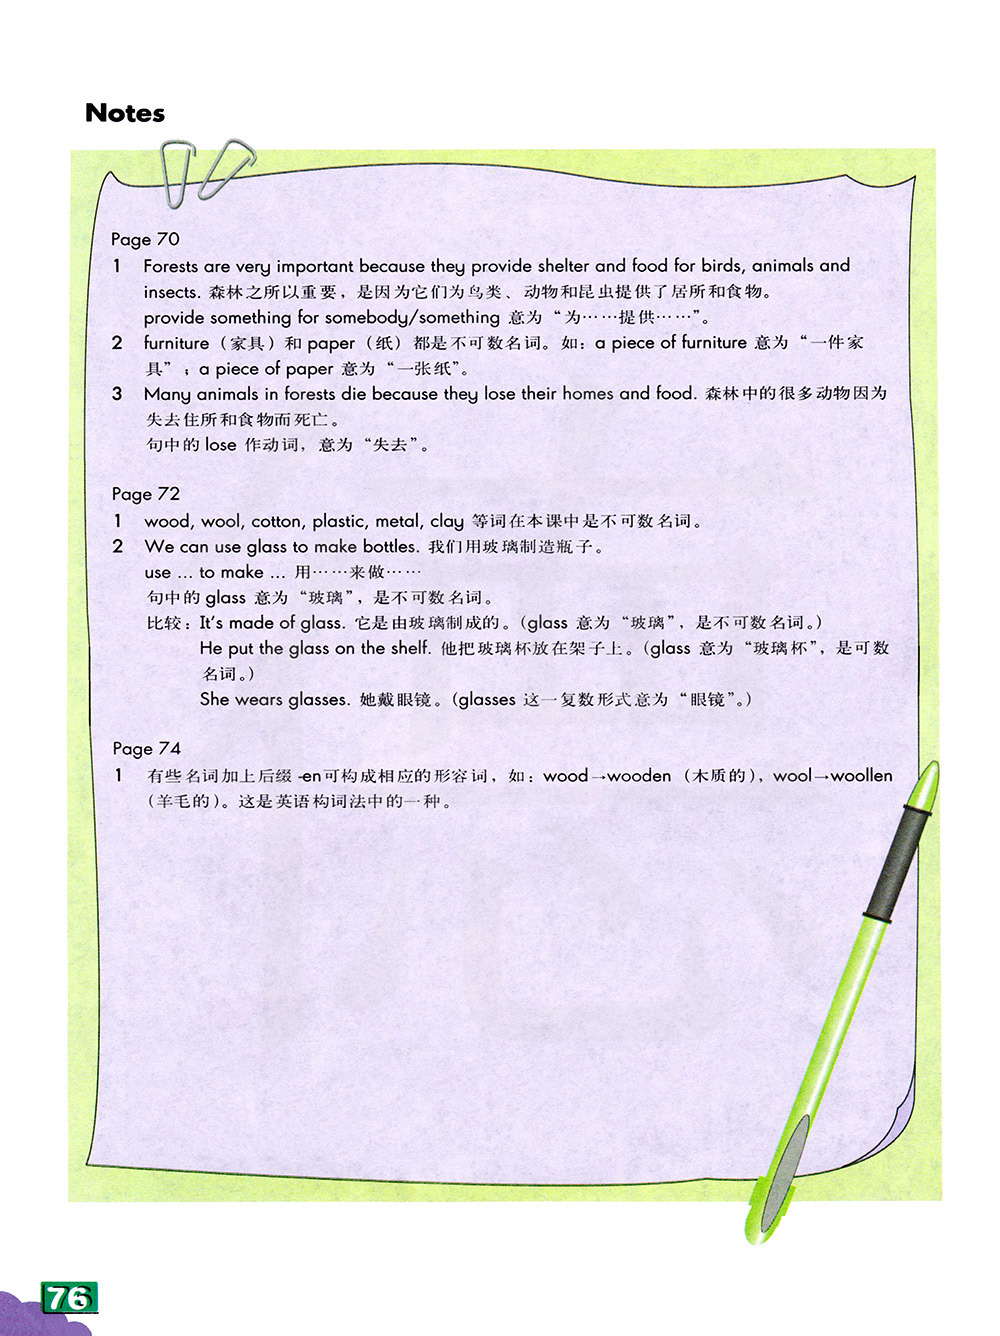 Notes
Page 70
1 Forests are very important because they provide shelter and food for birds, animals and
insects. 森林之所以重要，是因为它们为鸟类、动物和昆虫提供了居所和食物。
provide something for somebody/something 意为“为……提供……”。
2 furniture（家具）和 paper（纸）都是不可数名词。如：a piece of furniture 意为“一件家
具”；a piece of paper 意为“一张纸”。
3 Many animals in forests die because they lose their homes and food. 森林中的很多动物因为
失去住所和食物而死亡。
句中的 lose 作动词，意为“失去”。
Page 72
1 wood, wool, cotton, plastic, metal, clay 等词在本课中是不可数名词。
2 We can use glass to make bottles. 我们用玻璃制造瓶子。
use ... to make ... 用……来做……
句中的 glass 意为“玻璃”，是不可数名词。
比较：It's made of glass. 它是由玻璃制成的。（glass 意为“玻璃”，是不可数名词。）
He put the glass on the shelf. 他把玻璃杯放在架子上。（glass 意为“玻璃杯”，是可数
名词。）
She wears glasses. 她戴眼镜。（glasses 这一复数形式意为“眼镜”。）
Page 74
1 有些名词加上后缀 -en可构成相应的形容词，如：wood→wooden（木质的），wool→woollen
（羊毛的）。这是英语构词法中的一种。
76